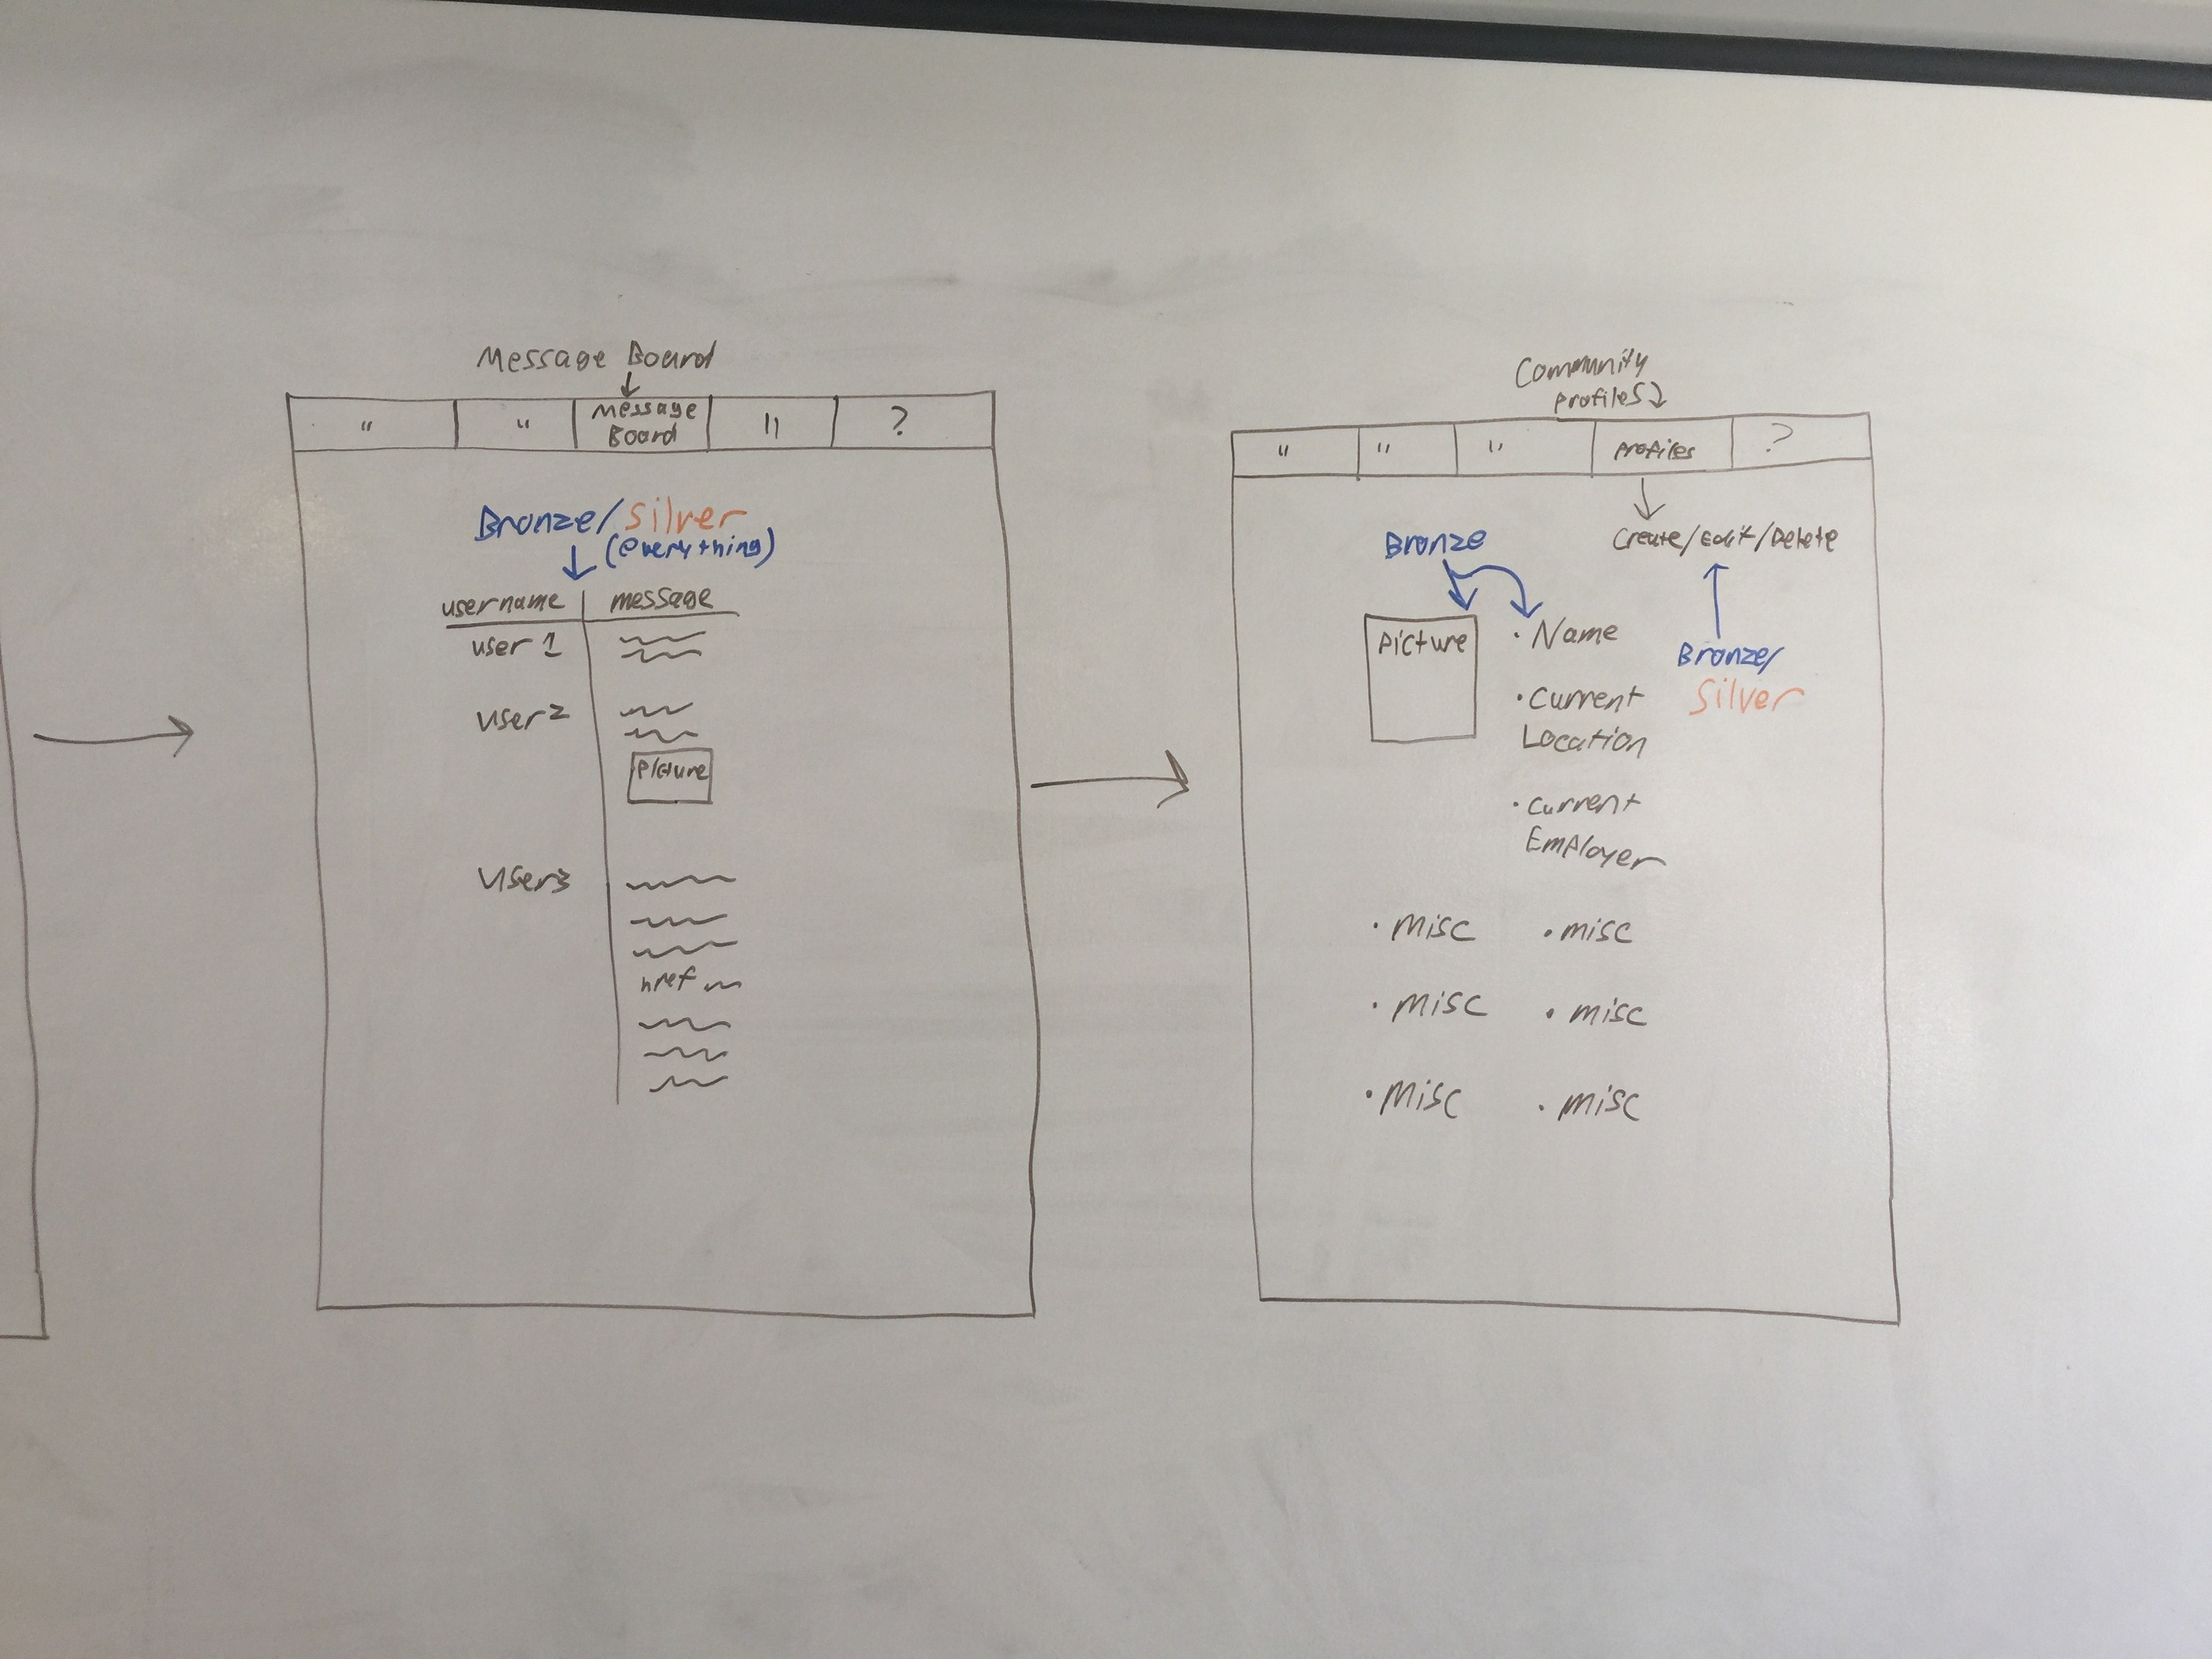 Message Board
" " Message " ?
Board
Bronze/Silver
(everything)
username message
user 1
user 2
Picture
user 3
href
Community
profiles
" " " profiles ?
Create/Edit/Delete
Bronze
Picture
• Name
• Current
Location
• Current
Employer
Bronze/
Silver
• Misc • misc
• Misc • misc
• Misc • misc